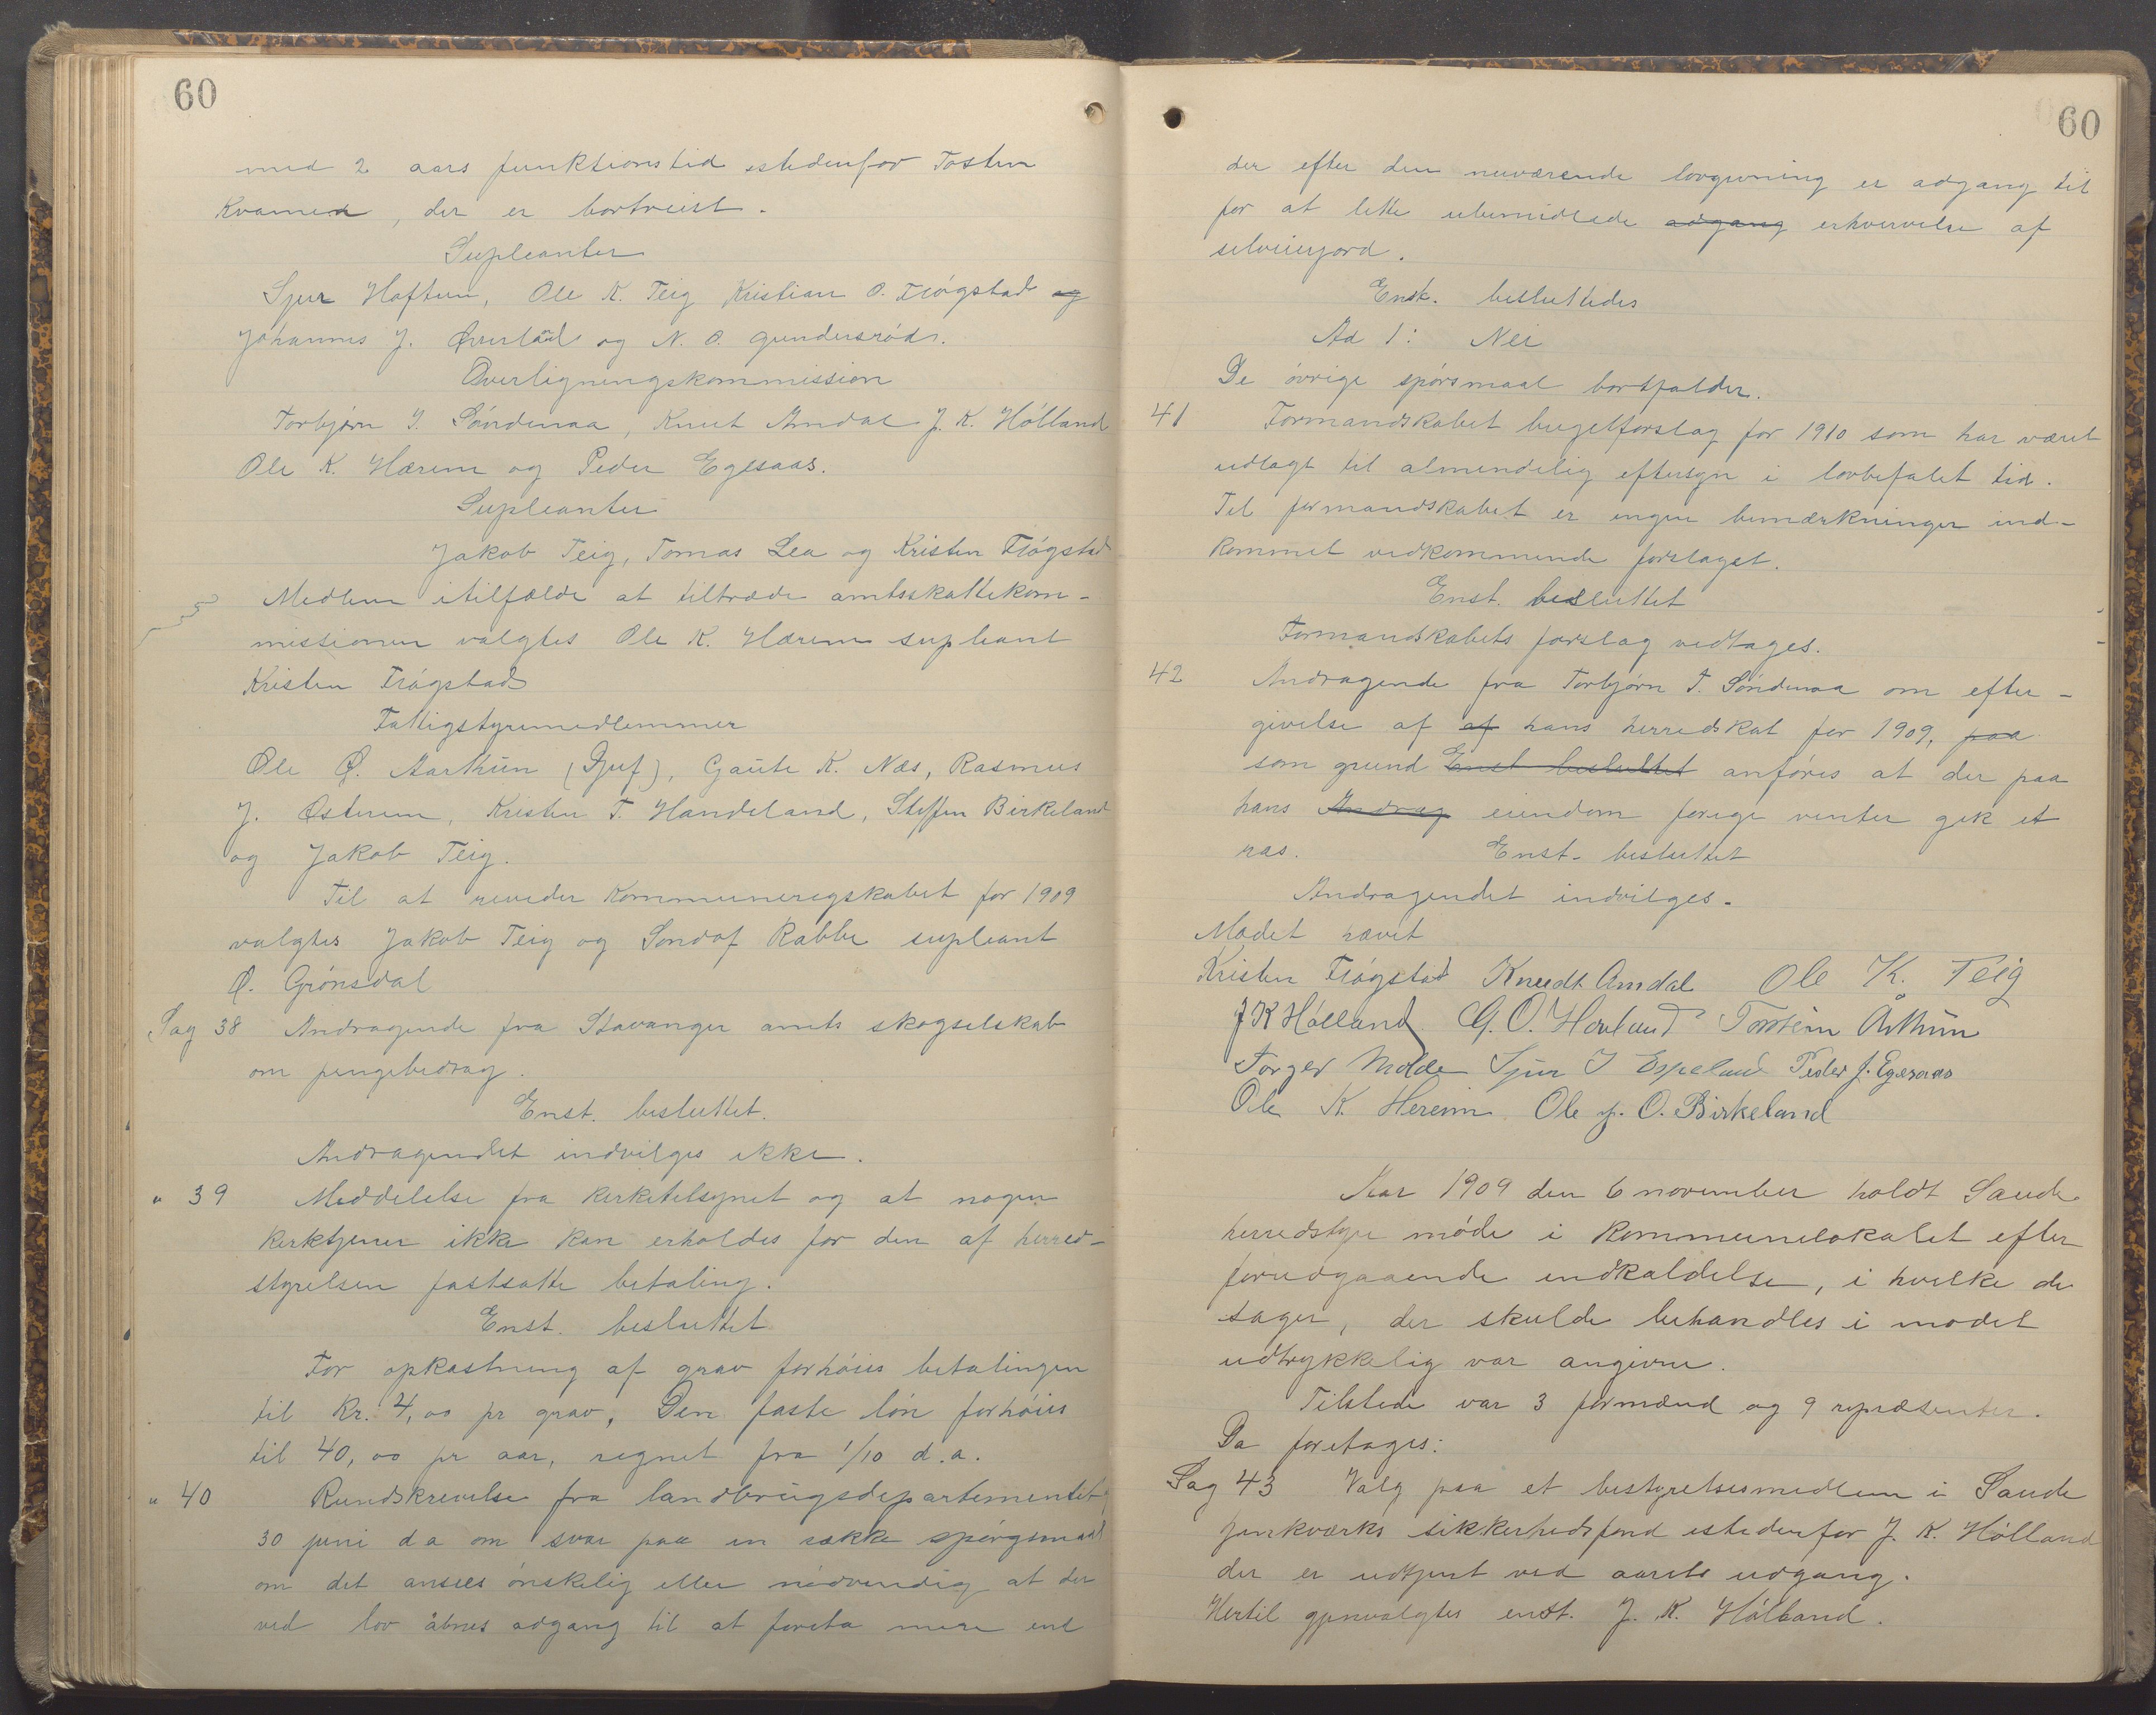 60
med 2 aars funktionstid istedenfor Tosten
Kvamen, der er bortreist.
Supleanter
Sjur Haftun, Ole K. Teig Kristian O. Fløgstad og
Johannes J. Øverland og N. O. Gundersrød.
Overligningskommission
Torbjørn T. Søndenaa, Knut Amdal J. K. Hølland
Ole K. Hærem og Peder Egesaas.
Supleanter
Jakob Teig, Tomas Lea og Kristen Fløgstad
Medlem itilfælde at tiltræde amtsskattekom-
missionen valgtes Ole K. Hærem supleant
Kristen Fløgstad
Fattigstyremedlemmer
Ole Ø. Aarthun (Djuf), Gaute K. Næs, Rasmus
J. Østrem, Kristen T. Handeland, Steffen Birkeland
og Jakob Teig.
Til at revider kommuneregskabet for 1909
valgtes Jakob Teig og Sondof Rabbe supleant
Ø. Grønsdal
Sag 38 Andragende fra Stavanger amts skogselskab
om pengebedrag.
Enst. besluttet.
Andragendet indvilges ikke.
" 39 Meddelelse fra kirketilsynet og at nogen
kirktjener ikke kan erholdes for den af herred-
styrelsen fastsatte betaling.
Enst. besluttet
For opkastning af grav forhøies betalingen
til kr. 4,00 pr grav, Den faste løn forhøies
til 40,00 pr aar, regnet fra 1/10 d.a.
" 40 Rundskrivelse fra landbrugsdepartementet
30 juni d a om svar paa en række spørgsmaal
om det ansees ønskelig eller nødvendig at der
ved lov åbnes adgang til at foreta mere end
60
der efter den nuværende lovgivning er adgang til
for at lette ubemidlede adgang erhvervelse af
selveierjord.
Enst. besluttedes
Ad 1: Nei
De øvrige spørsmaal bortfalder.
41 Formandskabet bugetforslag for 1910 som har været
udlagt til almendelig eftersyn i lovbefalet tid.
Til formandskabet er ingen bemærkninger ind-
kommet vedkommende forslaget.
Enst. besluttet
Formandskabets forslag vedtages.
42 Andragende fra Torbjørn T. Søndenaa om efter-
givelse af af hans herredskat for 1909, paa
som grund Enst besluttet anføres at der paa
hans Andrag eiendom forige venter gik et
ras. Enst. besluttet
Andragendet indvilges.
Mødet hævet
Kristen Fløgstad Knudt Amdal Ole K. Teig
J K Hølland G. O. Hovland Torstein Årthun
Torger Molde Sjur I Espeland Peder J. Egesaas
Ole K. Hereim Ole J. O. Birkeland
Aar 1909 den 6 november holdt Saude
herredstyre møde i kommunelokalet efter
forudgaaende indkaldelse, i hvilke de
sager, der skulde behandles i mødet
udtrykkelig var angivne.
Tilstede var 3 formænd og 9 repræsenter.
Da foretages:
Sag 43 Valg paa et bestyrelsesmedlem i Saude
jenkværks sikkerhedsfond istedenfor J. K. Hølland
der er udtjent ved aarets udgang.
Hertil gjenvalgtes enst. J. K. Hølland.